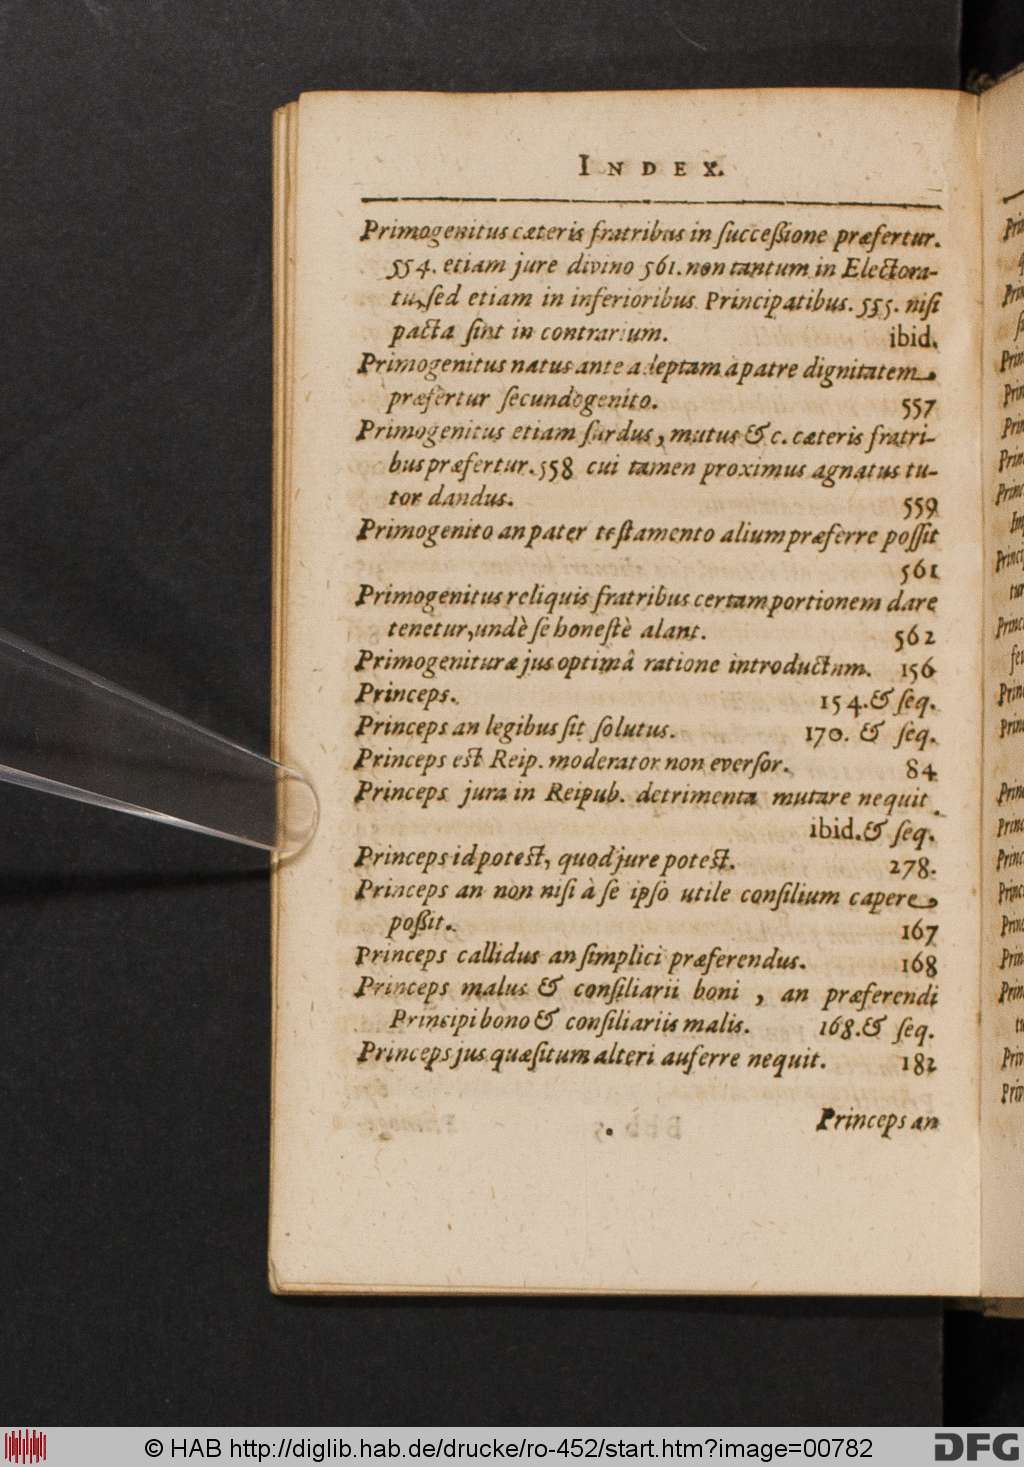 INDEX.
Primogenitus cæteris fratribus in succeßione præfertur.
554. etiam jure divino 561. non tantum in Electora-
tu, sed etiam in inferioribus Principatibus. 555. nisi
pacta sint in contrarium. ibid.
Primogenitus natus ante adeptam à patre dignitatem
præfertur secundogenito. 557
Primogenitus etiam surdus, mutus & c. cæteris fratri-
bus præfertur. 558 cui tamen proximus agnatus tu-
tor dandus. 559
Primogenito an pater testamento alium præferre possit
561
Primogenitus reliquis fratribus certam portionem dare
tenetur, undè se honestè alant. 562
Primogenituræ jus optimâ ratione introductum. 156
Princeps. 154. & seq.
Princeps an legibus sit solutus. 170. & seq.
Princeps est Reip. moderator non eversor. 84
Princeps jura in Reipub. detrimenta mutare nequit.
ibid. & seq.
Princeps id potest, quod jure potest. 278.
Princeps an non nisi à se ipso utile consilium capere
poßit. 167
Princeps callidus an simplici præferendus. 168
Princeps malus & consiliarii boni , an præferendi
Principi bono & consiliariis malis. 168. & seq.
Princeps jus quæsitum alteri auferre nequit. 182
Princeps an
© HAB http://diglib.hab.de/drucke/ro-452/start.htm?image=00782
DFG